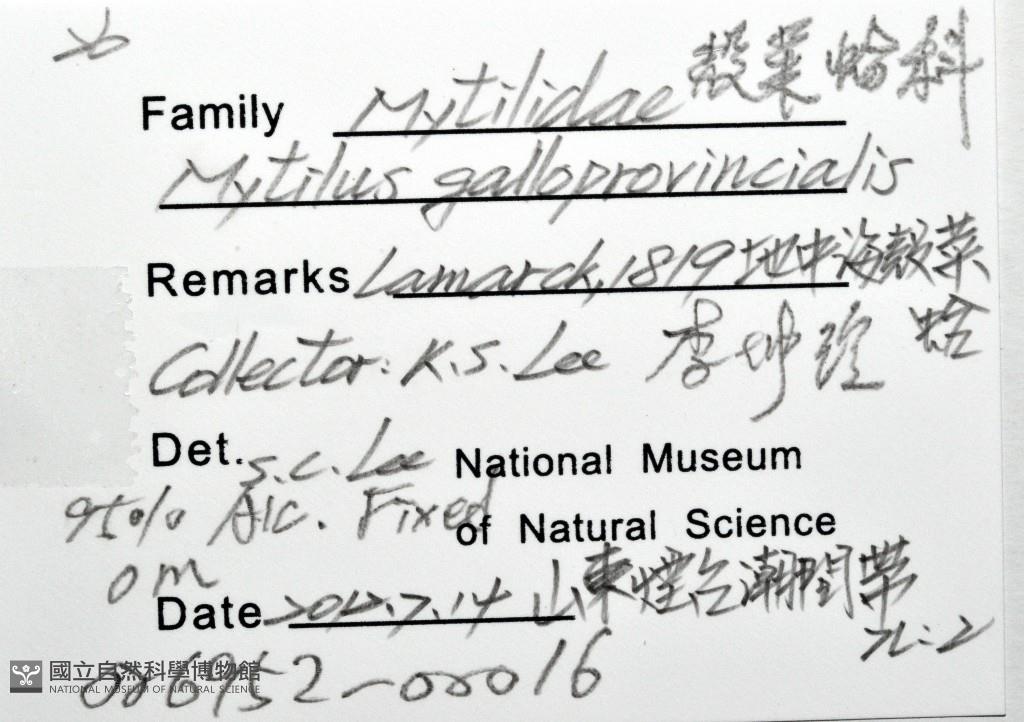 Family Mytilidae 殼菜蛤科
Mytilus galloprovincialis
Remarks Lamarck, 1819 地中海殼菜
蛤
Collector: K.S. Lee 李坤瑄
Det. S.C. Lee National Museum
95% Alc. Fixed of Natural Science
0m
Date 2012.7.14 山東煙台潮間帶
n=2
006952-00016
國立自然科學博物館
NATIONAL MUSEUM OF NATURAL SCIENCE